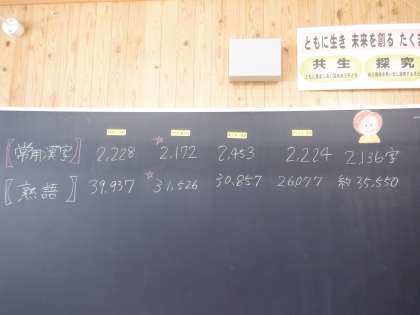 ともに生き 未来を創る たくま
共生 探究
〖常用漢字〗 2,228 2,172 2,453 2,224 2,136字
〖熟語〗 39,937 31,526 30,857 26,077 約35,550